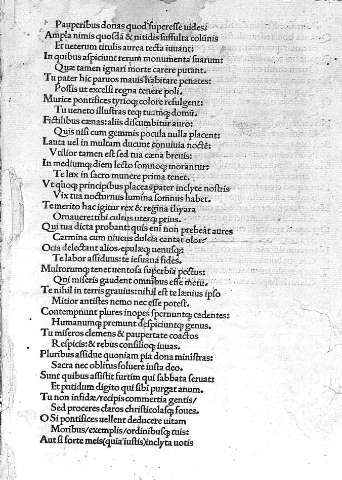 Pauperibus donas quod superesse uides:
Ampla nimis quosdã & nitidis suffulta colũnis
Et ueterum titulis aurea tecta iuuant:
In quibus aspiciunt rerum monumenta suarum:
Quæ tamen ignari morte carere putant.
Tu pater hic paruos mauis habitare penates:
Possis ut excelsi regna tenere poli.
Murice pontifices tyrioq; colore refulgent:
Tu ueneto illustras teq; tuãq; domũ.
Fictilibus cænas: aliis discumbitur auro:
Quis nisi cum gemmis pocula nulla placent:
Lauta uel in multam ducunt conuiuia noctẽ:
Vtilior tamen est sed tua cæna breuis:
In mediumq; diem lecto somnoq; morantur:
Te lux in sacro munere prima tenet.
Vt quoq; principibus placeas pater inclyte nostris
Vix tua nocturnus lumina somnus habet.
Te merito hac igitur rex & regina thyara
Ornauere tibi cultus uterq; prius.
Qui tua dicta probant: quis eni non præbeat aures
Carmina cum niueus dulcia cantat olor:
Ocia delectant alios. epulæq; uenusq;:
Te labor assiduus: te iesuana fides.
Multorumq; tenet uentosa superbia pectus:
Qui miseris gaudent omnibus esse metu.
Te nihil in terris grauius: nihil est te lænius ipso
Mitior antistes nemo nec esse potest.
Contempnunt plures inopes spernuntq; cadentes:
Humanumq; premunt despiciuntq; genus.
Tu miseros clemens & paupertate coactos
Respicis: & rebus consilioq; iuuas.
Pluribus assidue quoniam pia dona ministras:
Sacra nec oblitus soluere iusta deo.
Sunt quibus assistit furtim qui sabbata seruat:
Et patidum digito qui sibi purgat anum.
Tu non infidæ/recipis commertia gentis/
Sed proceres claros christicolasq; foues.
O Si pontifices uellent deducere uitam
Moribus/exemplis/ordinibusq; tuis:
Aut si forte meis(quia iustis)inclyta uotis